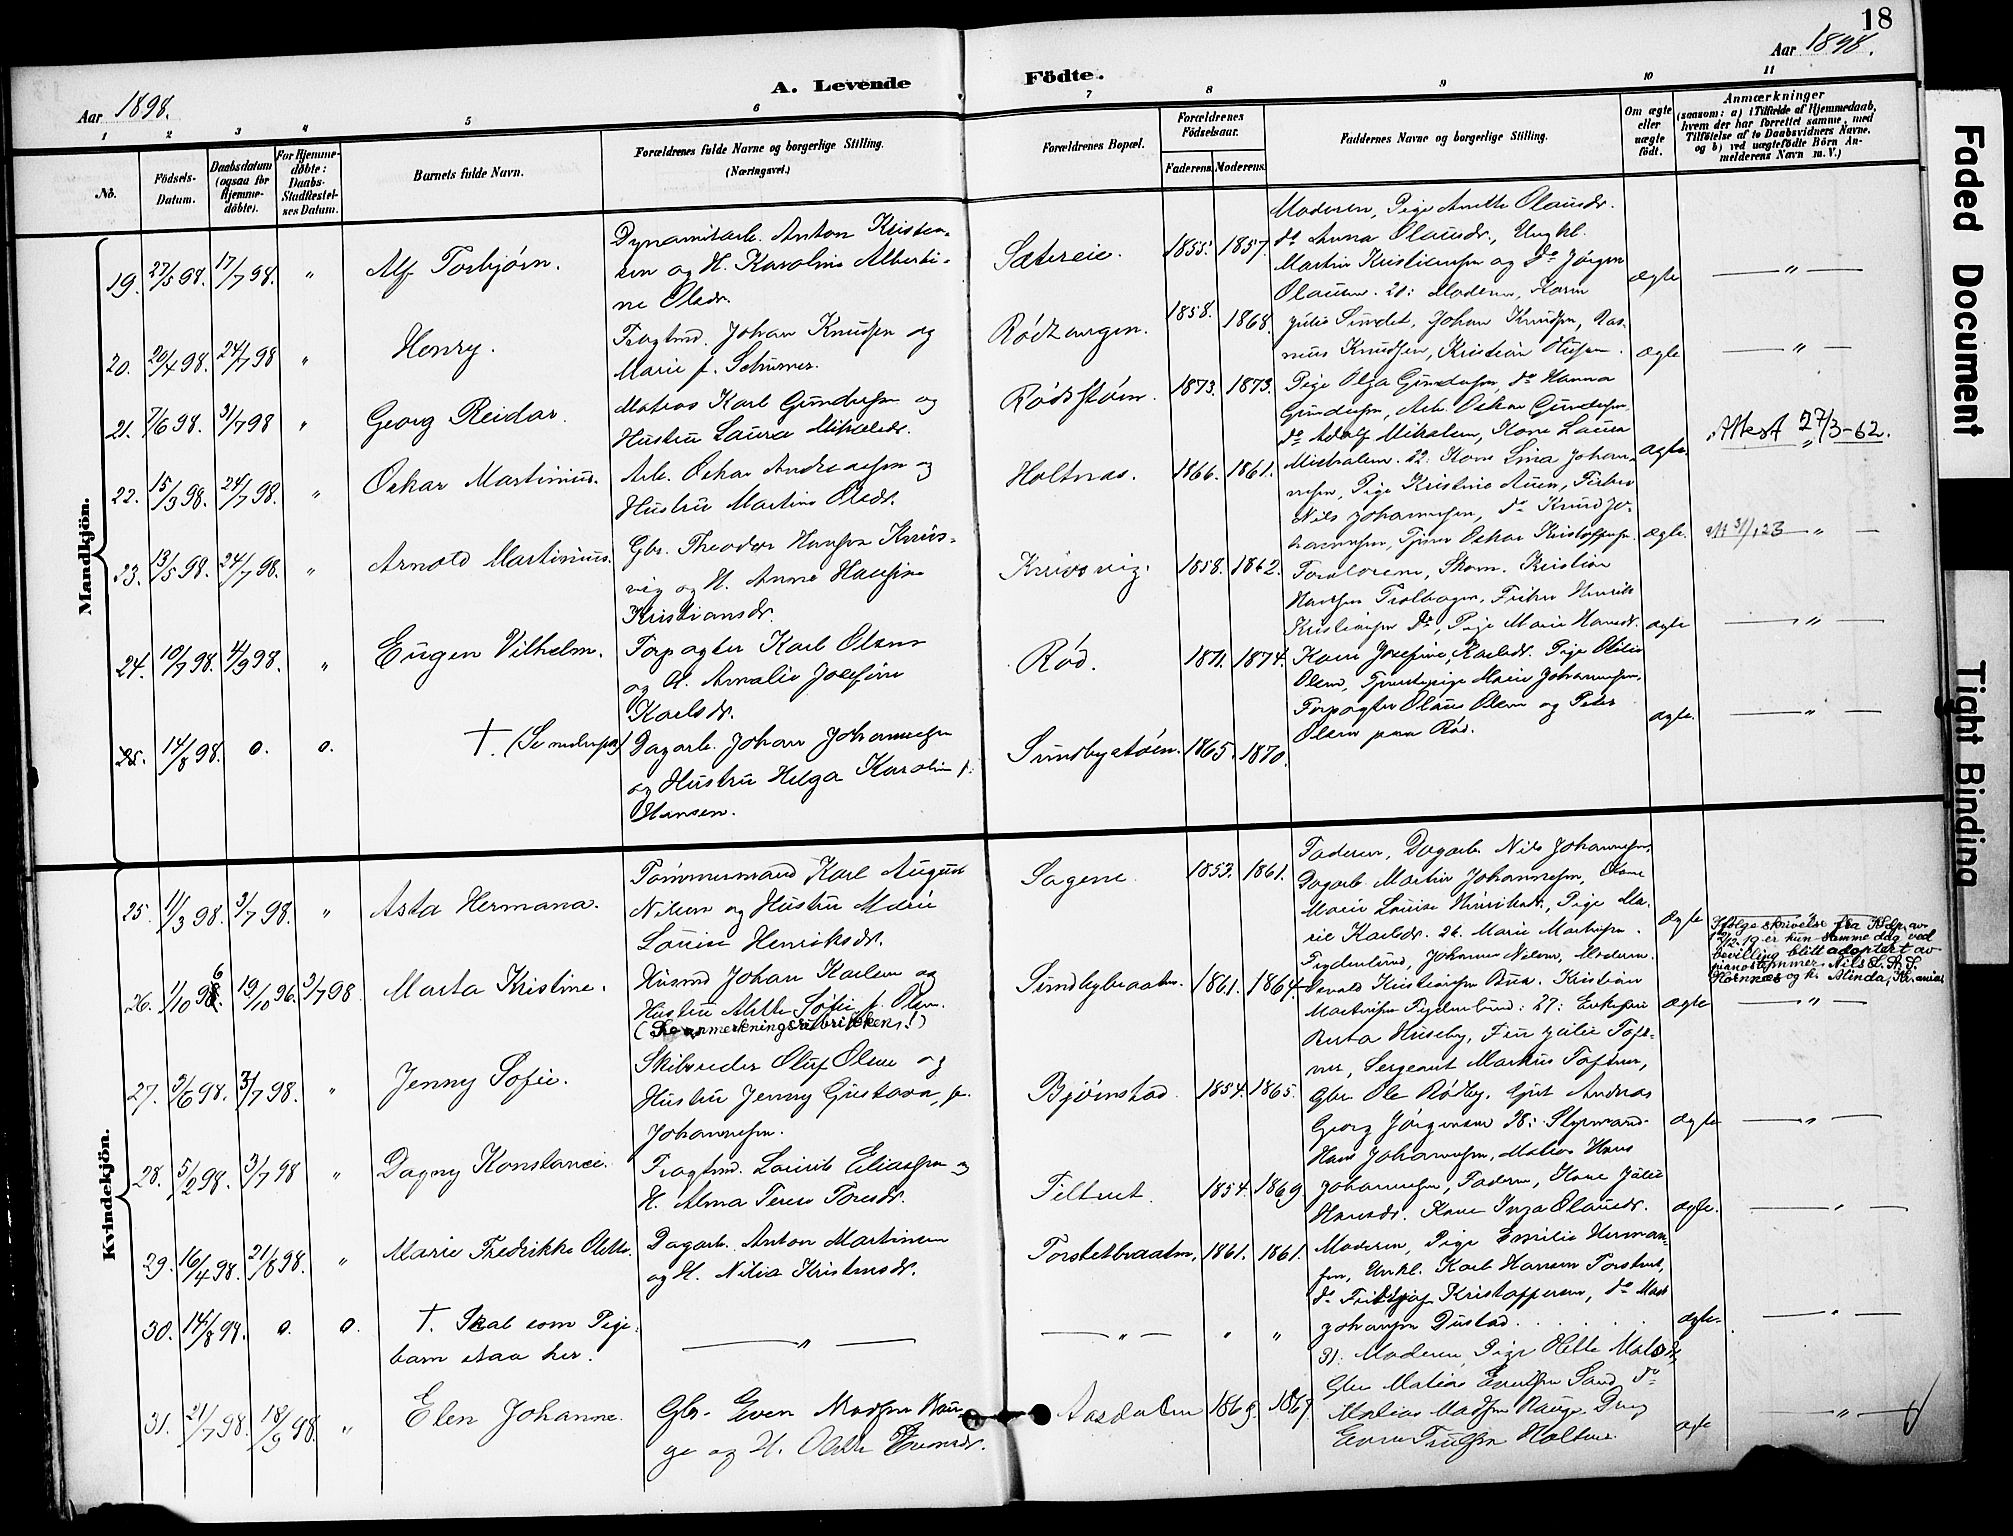 18
Aar 1898.
A. Levende
Födte.
Aar 1898.
1 2 3 4 5 6 7 8 9 10 11
No.
Födsels-
Datum.
Daabsdatum
(ogsaa for
Hjemme-
döbte).
For Hjemme-
döbte:
Daabs-
Stadfæstel-
ses Datum.
Barnets fulde Navn.
Forældrenes fulde Navne og borgerlige Stilling.
(Næringsvei.)
Forældrenes Bopæl.
Forældrenes
Födselsaar.
Faderens. Moderens.
Faddernes Navne og borgerlige Stilling.
Om ægte
eller
uægte
født.
Anmærkninger
(saasom: a) i Tilfælde af Hjemmedaab,
hvem der har forrettet samme, med
Tilföielse af to Daabsvidners Navne.
og b) ved uægtefödte Börn An-
melderens Navn m. V.)
Mandkjön.
19. 27/5 98. 17/7 98. " Alf Torbjørn.
Dynamitarb. Anton Kristen-
sen og H. Karoline Alberti-
ne Olsdr.
Sætereie. 1855. 1857.
Moderen, Pige Anette Olausdr.
do Anna Olausdr., Ungkl.
Martin Kristiansen og do Jørgen
Olausen. 20: Moderen, Karen
ægte — " —
20. 20/4 98. 24/7 98 " Henry.
Fragtmd. Johan Knudsen og
Marie f.
1858. 1868.
Julie Sundet, Johan Knudsen, Ras-
mus Knudsen, Kristian
ægte — " —
21. 7/6 98. 31/7 98 " Georg Reidar.
Matros Karl Gundersen og
Hustru Laura Mikalsdr.
Rødsstøen. 1873. 1873.
Pige Olga Gundersen, do Hanna
Gundersen, Arb. Oskar Gundersen,
do Adolf Mikalsen, Kone Laura
ægte Attest 27/3-62.
22. 15/3 98. 24/7 98. " Oskar Martinius.
Arb. Oskar Andreassen og
Hustru Martine Olsdr.
Holtnæs. 1866. 1861.
Mickalsen. 22: Kone Lina Johan-
nesen, Pige Kristine Auen, Fisker
Nils Johannesen, do Knud Jo-
hannesen, Tjener Oskar Kristoffersen.
ægte. — " —
23. 13/5 98. 24/7 98. " Arnold Martinius.
Gbr. Theodor Hansen Knivs-
vig og H. Anne Hansine
Kristiansdr.
Knivsvig. 1858. 1862.
Forældrene, Skom. Kristian
Hansen Trolbogen, Fisker Henrik
Kristiansen do, Pige Marie Hansdr.
ægte — " —
24. 10/7 98. 4/9 98. " Eugen Vilhelm.
Forpagter Karl Olsen
og H. Amalie Josefine
Karlsdr.
Rød. 1871. 1874.
Kone Josefine Karlsdr. Pige Otilie
Olsen, Tjenestepige Marie Johannesen,
Forpagter Olaus Olsen og Peter
Olsen paa Rød.
ægte. — " —
25. 14/8 98. 0. 0. †. (Se nedenfor)
Dagarb. Johan Johannesen
og Hustru Helga Karoline f.
Hansen.
Sundbystøen. 1865. 1870.
Kvindekjön.
25. 11/3 98. 3/7 98. " Asta Hermana.
Tømmermand Karl August
Nilsen og Hustru Marie
Louise Henriksdr.
Sagene. 1853. 1861.
Faderen, Dagarb. Nils Johannesen,
Dagarb. Martin Johannesen, Kone
Marie Louise Henriksdr., Pige Ma-
rie Karlsdr. 26. Marie Martinsen
ægte
Ifölge skrivelse fra K.Dp. av
12/2.19 er hun samme dag ved
bevilling blitt adoptert av
pianostemmer Nils L. A. S.
Hornnæs og h. Alinda, Kr.ania.
26. 1/10 96 19/10 96. 3/7 98 Marta Kristine.
Husmd Johan Karlsen og
Hustru Alette Sofie f. Olsen
(Se anmerkningsrubrikken!)
Sundbybraaten. 1861. 1864.
Fegdenlund, Johanne Nilsen, Moderen.
Osvald Kristiansen Bua. Kristian
Martinsen Fegdenlund: 27: Enkefru
ægte — " —
27. 3/6 98. 3/7 98. " Jenny Sofie.
Skibsreder Oluf Olsen og
Hustru Jenny Gustava, f.
Johannesen.
Bjørnstad 1854. 1865.
Berta Huseby, Fru Julie Toft-
ner, Sergeant Markus Toftner,
Gbr. Ole Rødby, Gjest Andreas
Georg Jørgensen 28: Styrmand
ægte — " —
28. 5/2 98. 3/7 98 " Dagny Konstance.
Fragtmd. Laurits Eliassen og
H. Alma Terese Toresdr.
Feltvet. 1854. 1869
Hans Johannesen, Matros Hans
Johannesen, Faderen, Kone Julie
Hansdr. Kone Inga Olausdr.
ægte. — " —
29. 16/4 98. 21/8 98. " Marie Fredrikke Olette.
Dagarb. Anton Martinsen
og H. Nilia Kristensdr.
Torstetbraaten, 1861. 1861.
Moderen, Pige Emilie Herman-
sen, Unkl. Karl Hansen Torstvet,
do Fridtjof Kristoffersen, do
Johansen Dustad
ægte. — " —
30. 14/8 98. 0. 0. †. Skal som Pige-
barn staa her.
— " — — " — " "
31. 21/7 98. 18/9 98. " Elen Johanne.
Gbr. Even Madsen Hau-
ge og H. Olette Evensdr.
Aasdalen 1869. 1867
31: Moderen, Pige Olette Matsdr,
Gbr Matias Evensen Sand, do
Matias Madsen Hauge, Dreng
Even Trulsen Holtene.
ægte — " —
Faded Document
Tight Binding